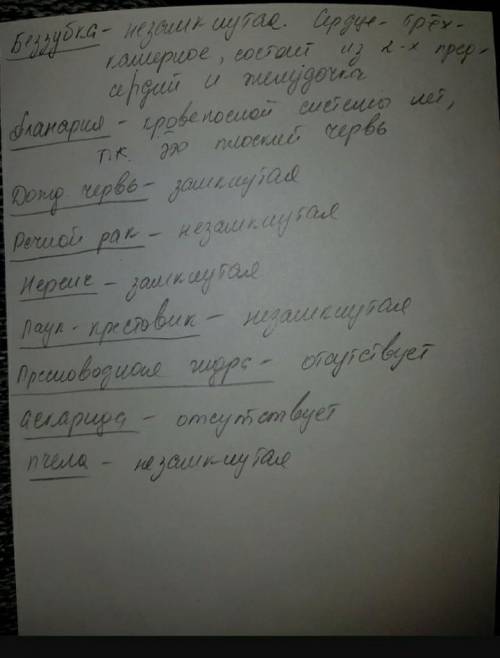 Беззубка - незамкнутая. Сердце - трёх-
камерное, состоит из 2-х пред-
сердий и желудочка
Планария - кровеносной системы нет,
т.к. это плоский червь
Дожд червь - замкнутая
Речной рак - незамкнутая
Нереис - замкнутая
Паук-крестовик - незамкнутая
Пресноводная гидра - отсутствует
аскарида - отсутствует
пчела - незамкнутая